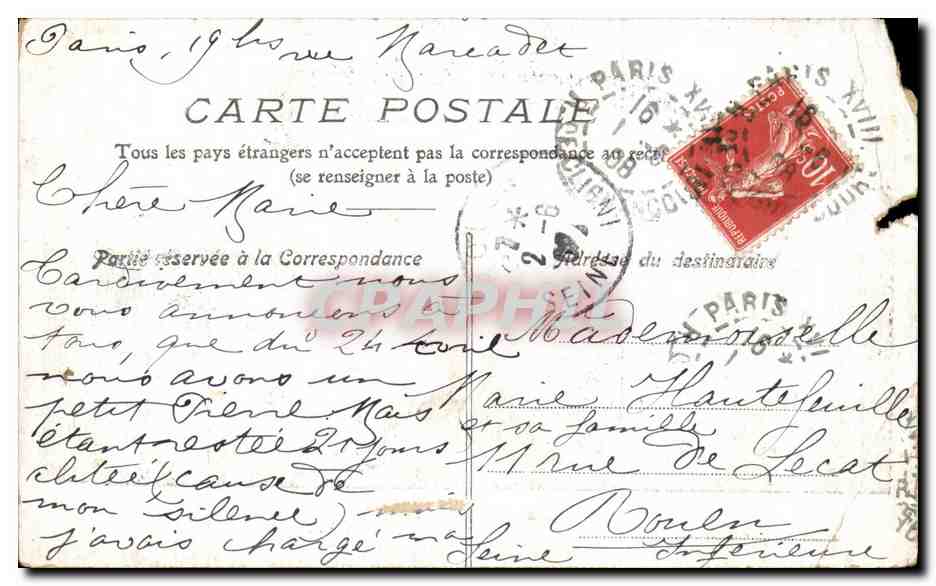 Paris, 19 bis rue Marcadet
CARTE POSTALE
Tous les pays étrangers n'acceptent pas la correspondance au recto
(se renseigner à la poste)
Chère Marie
Partie réservée à la Correspondance
Adresse du destinataire
Tardivement nous
vous annonçons à
tous, que du 24 avril
nous avons un
petit Pierre Mais
étant restée 21 jours
alitée (cause de
mon silence)
j'avais chargé
Mademoiselle
Marie Hautefeuille
et sa famille
11 rue de Lecat
Rouen
Seine Inférieure
PARIS XVIII
16
08
PARIS XVIII
POSTES
10
REPUBLIQUE
CLIGNANCOURT
SEINE
PARIS XVIII
CPAPHIL